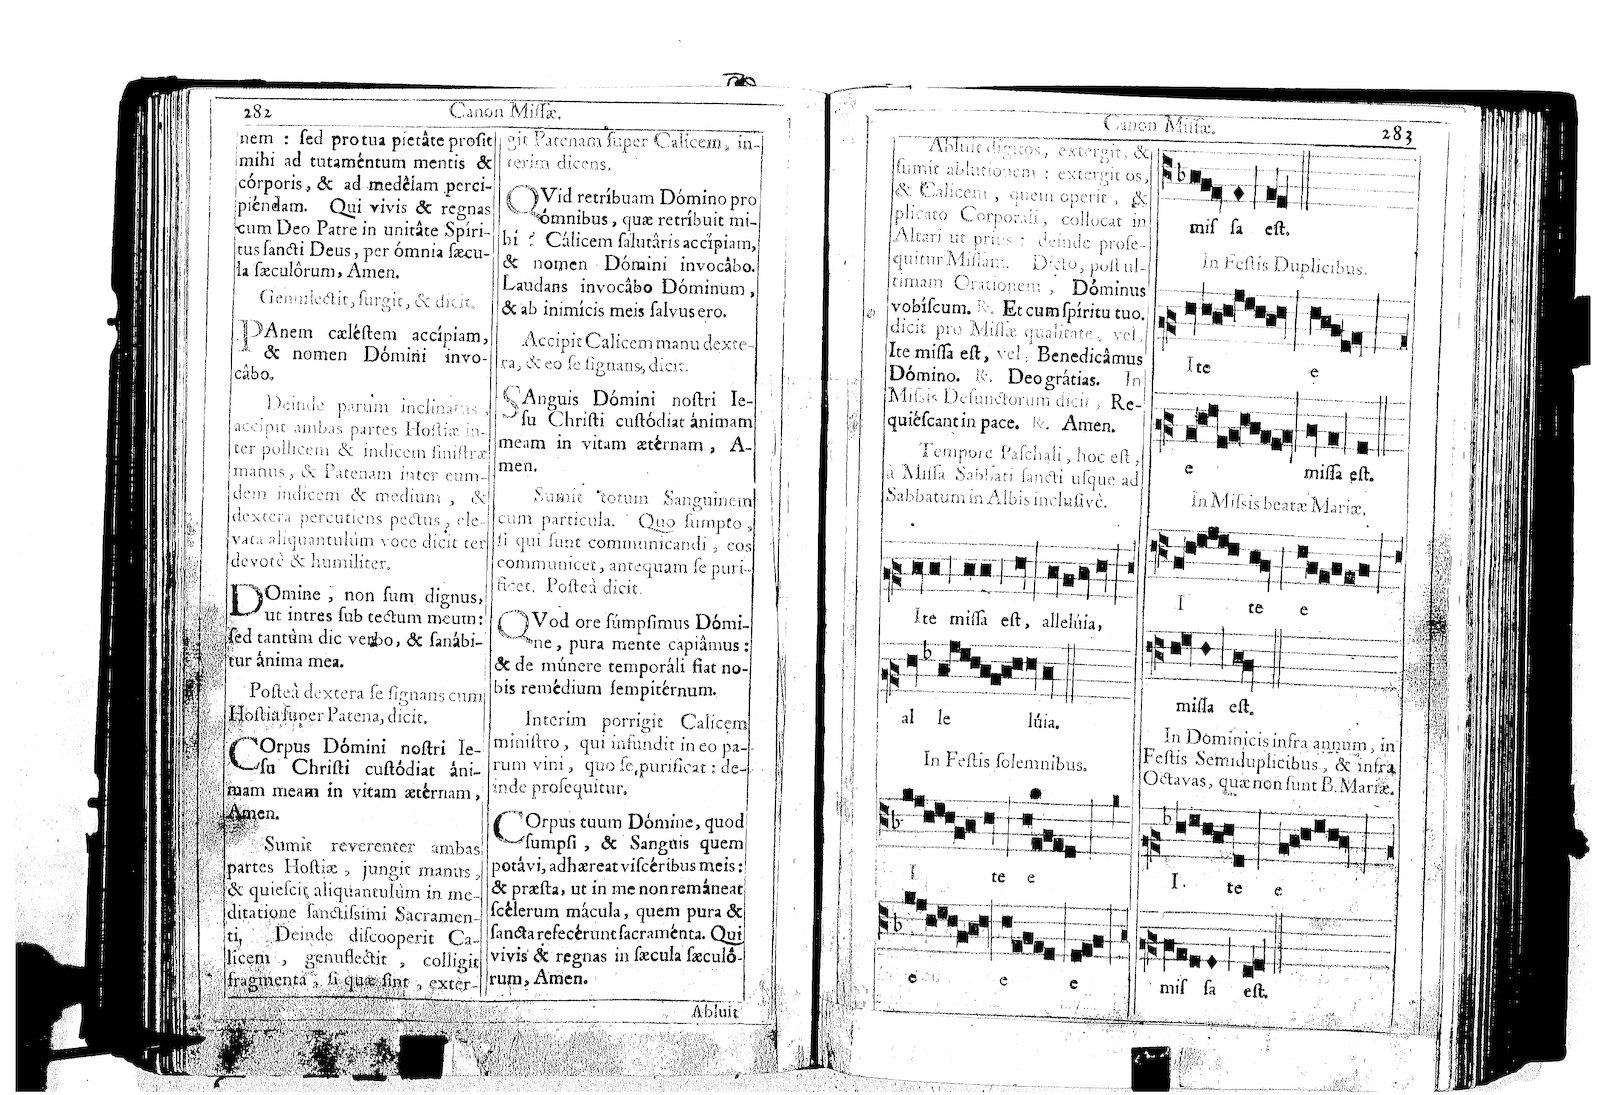 282
Canon Miſſæ.
nem : ſed pro tua pietâte proſit
mihi ad tutaméntum mentis &
córporis, & ad medêlam percí-
piéndam. Qui vivis & regnas
cum Deo Patre in unitâte Spíri-
tus ſancti Deus, per ómnia ſæcu-
la ſæculôrum, Amen.
Genuflectit, ſurgit, & dicit.
PAnem cæléſtem accípiam,
& nomen Dómini invo-
câbo.
Deinde parum inclinatus,
accipit ambas partes Hoſtiæ in-
ter pollicem & indicem ſiniſtræ
manus, & Patenam inter eum-
dem indicem & medium, &
dextera percutiens pectus, ele-
vata aliquantulùm voce dicit ter
devotè & humiliter.
DOmine, non ſum dignus,
ut intres ſub tectum meum:
ſed tantùm dic verbo, & ſanábi-
tur ánima mea.
Poſteà dextera ſe ſignans cum
Hoſtia ſuper Patena, dicit.
COrpus Dómini noſtri Ie-
ſu Chriſti cuſtódiat áni-
mam meam in vitam ætérnam,
Amen.
Sumit reverenter ambas
partes Hoſtiæ, jungit manus,
& quieſcit aliquantulùm in me-
ditatione ſanctiſſimi Sacramen-
ti, Deinde diſcooperit Ca-
licem, genuflectit, colligit
fragmenta, ſi quæ ſint, exter-
git Patenam ſuper Calicem, in-
terim dicens.
QVid retríbuam Dómino pro
ómnibus, quæ retríbuit mi-
hi ? Cálicem ſalutâris accípiam,
& nomen Dómini invocâbo.
Laudans invocâbo Dóminum,
& ab inimícis meis ſalvus ero.
Accipit Calicem manu dexte-
ra, & eo ſe ſignans, dicit.
SAnguis Dómini noſtri Ie-
ſu Chriſti cuſtódiat ánimam
meam in vitam ætérnam, A-
men.
Sumit totum Sanguinem
cum particula. Quo ſumpto,
ſi qui ſunt communicandi, eos
communicet, antequam ſe puri-
ficet. Poſteà dicit.
QVod ore ſúmpſimus Dómi-
ne, pura mente capiâmus :
& de múnere temporáli fiat no-
bis remédium ſempitérnum.
Interim porrigit Calicem
miniſtro, qui infundit in eo pa-
rum vini, quo ſe purificat : de-
inde proſequitur.
COrpus tuum Dómine, quod
ſumpſi, & Sanguis quem
potávi, adhæreat viſcéribus meis:
& præſta, ut in me non remáneat
ſcélerum mácula, quem pura &
ſancta refecérunt ſacraménta. Qui
vivis & regnas in ſæcula ſæculô-
rum, Amen.
Abluit
Canon Miſſæ.
283
Abluit digitos, extergit, &
ſumit ablutionem : extergit os,
& Calicem, quem operit, &
plicato Corporali, collocat in
Altari ut prius : deinde proſe-
quitur Miſſam. Dicto, poſt ul-
timam Orationem, Dóminus
vobíſcum. ℟. Et cum ſpíritu tuo.
dicit pro Miſſæ qualitate, vel,
Ite miſſa eſt, vel, Benedicâmus
Dómino. ℟. Deo grátias. In
Miſſis Defunctorum dicit, Re-
quiéſcant in pace. ℟. Amen.
Tempore Paſchali, hoc eſt,
à Miſſa Sabbati ſancti uſque ad
Sabbatum in Albis incluſivè.
Ite miſſa eſt, allelúia,
al le lúia.
In Feſtis ſolemnibus.
I te e
e e e
miſ ſa eſt.
In Feſtis Duplicibus.
Ite e
e miſſa eſt.
In Miſſis beatæ Mariæ.
I te e
miſſa eſt.
In Dominicis infra annum, in
Feſtis Semiduplicibus, & infra
Octavas, quæ non ſunt B. Mariæ.
I. te e
miſ ſa eſt.